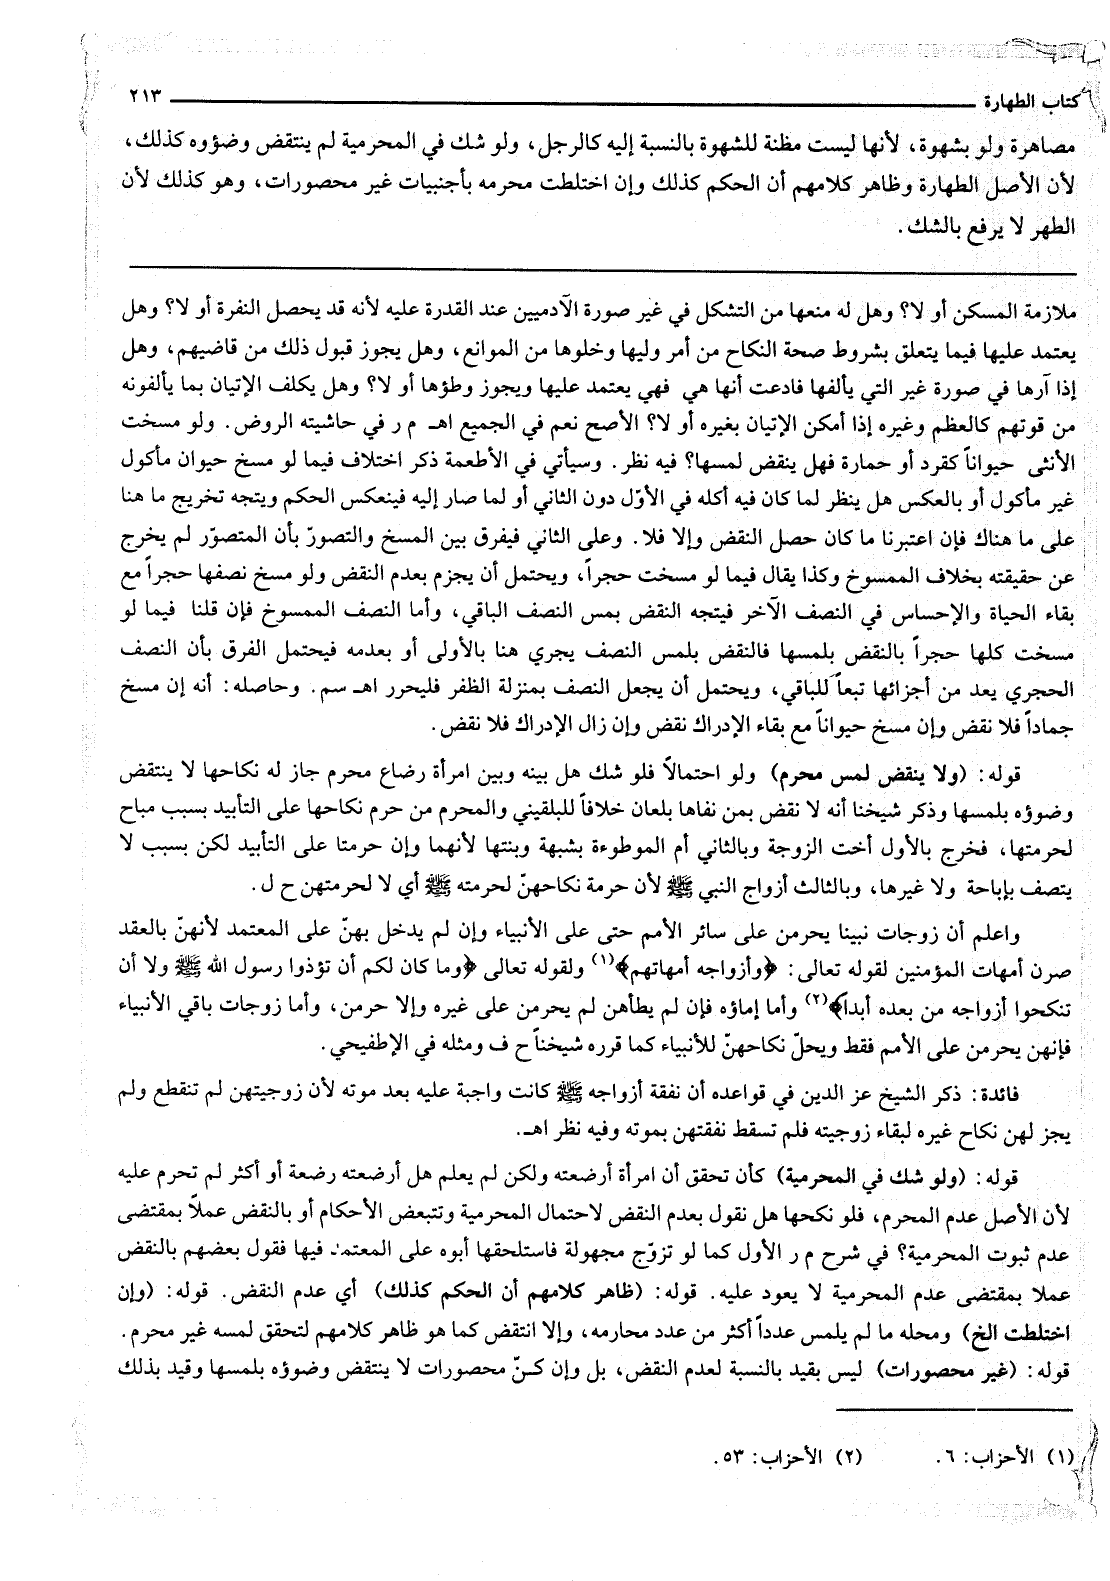 كتاب الطهارة ٢١٣
مصاهرة ولو بشهوة، لأنها ليست مظنة للشهوة بالنسبة إليه كالرجل، ولو شك في المحرمية لم ينتقض وضوؤه كذلك،
لأن الأصل الطهارة وظاهر كلامهم أن الحكم كذلك وإن اختلطت محرمه بأجنبيات غير محصورات، وهو كذلك لأن
الطهر لا يرفع بالشك.
ملازمة المسكن أو لا؟ وهل له منعها من التشكل في غير صورة الآدميين عند القدرة عليه لأنه قد يحصل النفرة أو لا؟ وهل
يعتمد عليها فيما يتعلق بشروط صحة النكاح من أمر وليها وخلوها من الموانع، وهل يجوز قبول ذلك من قاضيهم، وهل
إذا آرها في صورة غير التي يألفها فادعت أنها هي فهي يعتمد عليها ويجوز وطؤها أو لا؟ وهل يكلف الإتيان بما يألفونه
من قوتهم كالعظم وغيره إذا أمكن الإتيان بغيره أو لا؟ الأصح نعم في الجميع اهـ م ر في حاشيته الروض. ولو مسخت
الأنثى حيواناً كقرد أو حمارة فهل ينقض لمسها؟ فيه نظر. وسيأتي في الأطعمة ذكر اختلاف فيما لو مسخ حيوان مأكول
غير مأكول أو بالعكس هل ينظر لما كان فيه أكله في الأوّل دون الثاني أو لما صار إليه فينعكس الحكم ويتجه تخريج ما هنا
على ما هناك فإن اعتبرنا ما كان حصل النقض وإلا فلا. وعلى الثاني فيفرق بين المسخ والتصورّ بأن المتصوّر لم يخرج
عن حقيقته بخلاف الممسوخ وكذا يقال فيما لو مسخت حجراً، ويحتمل أن يجزم بعدم النقض ولو مسخ نصفها حجراً مع
بقاء الحياة والإحساس في النصف الآخر فيتجه النقض بمس النصف الباقي، وأما النصف الممسوخ فإن قلنا فيما لو
مسخت كلها حجراً بالنقض بلمسها فالنقض بلمس النصف يجري هنا بالأولى أو بعدمه فيحتمل الفرق بأن النصف
الحجري يعد من أجزائها تبعاً للباقي، ويحتمل أن يجعل النصف بمنزلة الظفر فليحرر اهـ سم. وحاصله: أنه إن مسخ
جماداً فلا نقض وإن مسخ حيواناً مع بقاء الإدراك نقض وإن زال الإدراك فلا نقض.
قوله: (ولا ينقض لمس محرم) ولو احتمالاً فلو شك هل بينه وبين امرأة رضاع محرم جاز له نكاحها لا ينتقض
وضوؤه بلمسها وذكر شيخنا أنه لا نقض بمن نفاها بلعان خلافاً للبلقيني والمحرم من حرم نكاحها على التأبيد بسبب مباح
لحرمتها، فخرج بالأول أخت الزوجة وبالثاني أم الموطوءة بشبهة وبنتها لأنهما وإن حرمتا على التأبيد لكن بسبب لا
يتصف بإباحة ولا غيرها، وبالثالث أزواج النبي ﷺ لأن حرمة نكاحهنّ لحرمته ﷺ أي لا لحرمتهن ح ل.
واعلم أن زوجات نبينا يحرمن على سائر الأمم حتى على الأنبياء وإن لم يدخل بهنّ على المعتمد لأنهنّ بالعقد
صرن أمهات المؤمنين لقوله تعالى: ﴿وأزواجه أمهاتهم﴾(١) ولقوله تعالى ﴿وما كان لكم أن تؤذوا رسول الله ﷺ ولا أن
تنكحوا أزواجه من بعده أبداً﴾(٢) وأما إماؤه فإن لم يطأهن لم يحرمن على غيره وإلا حرمن، وأما زوجات باقي الأنبياء
فإنهن يحرمن على الأمم فقط ويحلّ نكاحهنّ للأنبياء كما قرره شيخناً ح ف ومثله في الإطفيحي.
فائدة: ذكر الشيخ عز الدين في قواعده أن نفقة أزواجه ﷺ كانت واجبة عليه بعد موته لأن زوجيتهن لم تنقطع ولم
يجز لهن نكاح غيره لبقاء زوجيته فلم تسقط نفقتهن بموته وفيه نظر اهـ.
قوله: (ولو شك في المحرمية) كأن تحقق أن امرأة أرضعته ولكن لم يعلم هل أرضعته رضعة أو أكثر لم تحرم عليه
لأن الأصل عدم المحرم، فلو نكحها هل نقول بعدم النقض لاحتمال المحرمية وتتبعض الأحكام أو بالنقض عملاً بمقتضى
عدم ثبوت المحرمية؟ في شرح م ر الأول كما لو تزوّج مجهولة فاستلحقها أبوه على المعتمد فيها فقول بعضهم بالنقض
عملا بمقتضى عدم المحرمية لا يعود عليه. قوله: (ظاهر كلامهم أن الحكم كذلك) أي عدم النقض. قوله: (وإن
اختلطت الخ) ومحله ما لم يلمس عدداً أكثر من عدد محارمه، وإلا انتقض كما هو ظاهر كلامهم لتحقق لمسه غير محرم.
قوله: (غير محصورات) ليس بقيد بالنسبة لعدم النقض، بل وإن كنّ محصورات لا ينتقض وضوؤه بلمسها وقيد بذلك
(١) الأحزاب: ٦. (٢) الأحزاب: ٥٣.